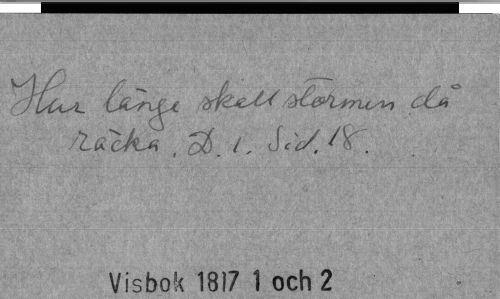 Hur länge skall stormen då
räcka. D. 1. Sid. 18.
Visbok 1817 1 och 2